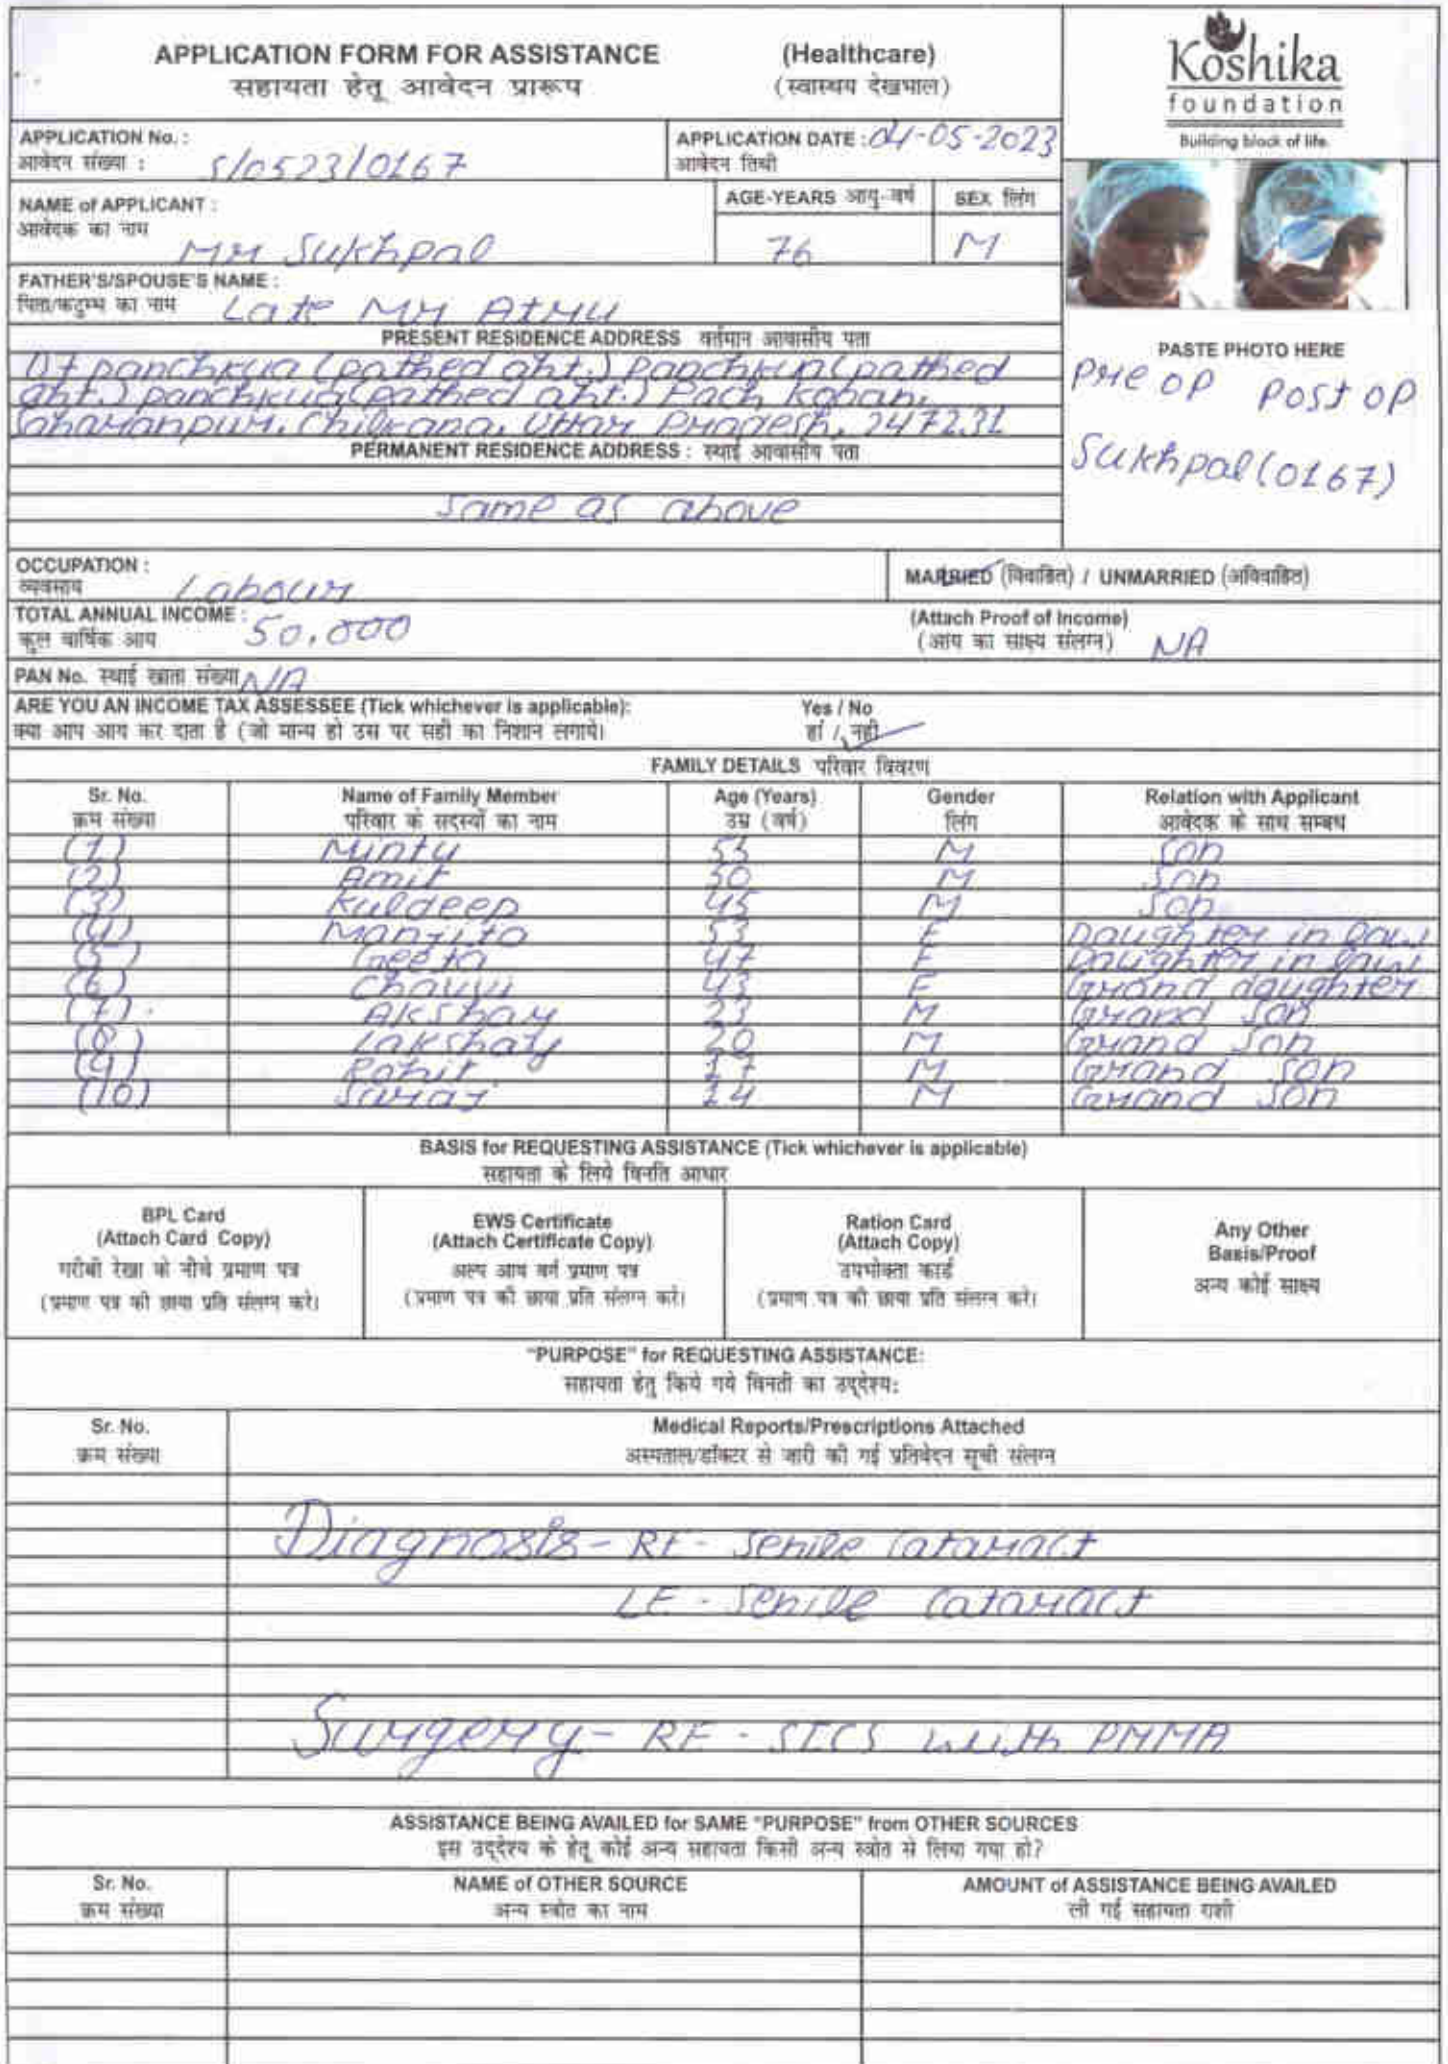 APPLICATION FORM FOR ASSISTANCE (Healthcare)
सहायता हेतू आवेदन प्रारूप (स्वास्थय देखभाल)
Koshika
foundation
Building block of life.
APPLICATION No. :
आवेदन संख्या : S/0523/0167
APPLICATION DATE : 04-05-2023
आवेदन तिथी
NAME of APPLICANT :
आवेदक का नाम Mr Sukhpal
AGE-YEARS आयु-वर्ष 76
SEX लिंग M
FATHER'S/SPOUSE'S NAME :
पिता/कटुम्ब का नाम Late Mr Atru
PASTE PHOTO HERE
Pre op Post op
Sukhpal (0167)
PRESENT RESIDENCE ADDRESS वर्तमान आवासीय पता
panchkua (pathed aht.) Panchkua (pathed
aht.) panchkua (pathed aht.) Pach kohan,
Saharanpur, Chilkana, Uttar Pradesh, 247231
PERMANENT RESIDENCE ADDRESS : स्थाई आवासीय पता
Same as above
OCCUPATION :
व्यवसाय Labour
MARRIED (विवाहित) / UNMARRIED (अविवाहित)
TOTAL ANNUAL INCOME :
कुल वार्षिक आय 50,000
(Attach Proof of Income)
(आय का साक्ष्य संलग्न) NA
PAN No. स्थाई खाता संख्या NA
ARE YOU AN INCOME TAX ASSESSEE (Tick whichever is applicable): Yes / No
क्या आप आय कर दाता है (जो मान्य हो उस पर सही का निशान लगाये। हां / नहीं
FAMILY DETAILS परिवार विवरण
Sr. No. Name of Family Member Age (Years) Gender Relation with Applicant
क्रम संख्या परिवार के सदस्यों का नाम उम्र (वर्ष) लिंग आवेदक के साथ सम्बध
(1) Minty M Son
(2) Amit 50 M Son
(3) Kuldeep 45 M Son
(4) Manjita 53 F Daughter in law
(5) Geeta 47 F Daughter in law
(6) Chauvi 43 F Grand daughter
(7) Akshay 23 M Grand Son
(8) Lakshay 20 M Grand Son
(9) Rohit 17 M Grand Son
(10) Suraj 14 M Grand Son
BASIS for REQUESTING ASSISTANCE (Tick whichever is applicable)
सहायता के लिये विनति आधार
BPL Card
(Attach Card Copy)
गरीबी रेखा के नीचे प्रमाण पत्र
(प्रमाण पत्र की छाया प्रति संलग्न करे।
EWS Certificate
(Attach Certificate Copy)
अल्प आय वर्ग प्रमाण पत्र
(प्रमाण पत्र की छाया प्रति संलग्न करे।
Ration Card
(Attach Copy)
उपभोक्ता कार्ड
(प्रमाण पत्र की छाया प्रति संलग्न करे।
Any Other
Basis/Proof
अन्य कोई साक्ष्य
"PURPOSE" for REQUESTING ASSISTANCE:
सहायता हेतु किये गये विनती का उद्देश्य:
Sr. No. Medical Reports/Prescriptions Attached
क्रम संख्या अस्पताल/डॉक्टर से जारी की गई प्रतिवेदन सूची संलग्न
Diagnosis - RE - Senile Cataract
LE - Senile Cataract
Surgery - RE - SICS with PMMA
ASSISTANCE BEING AVAILED for SAME "PURPOSE" from OTHER SOURCES
इस उद्देश्य के हेतू कोई अन्य सहायता किसी अन्य स्त्रोत से लिया गया हो?
Sr. No. NAME of OTHER SOURCE AMOUNT of ASSISTANCE BEING AVAILED
क्रम संख्या अन्य स्त्रोत का नाम ली गई सहायता राशी